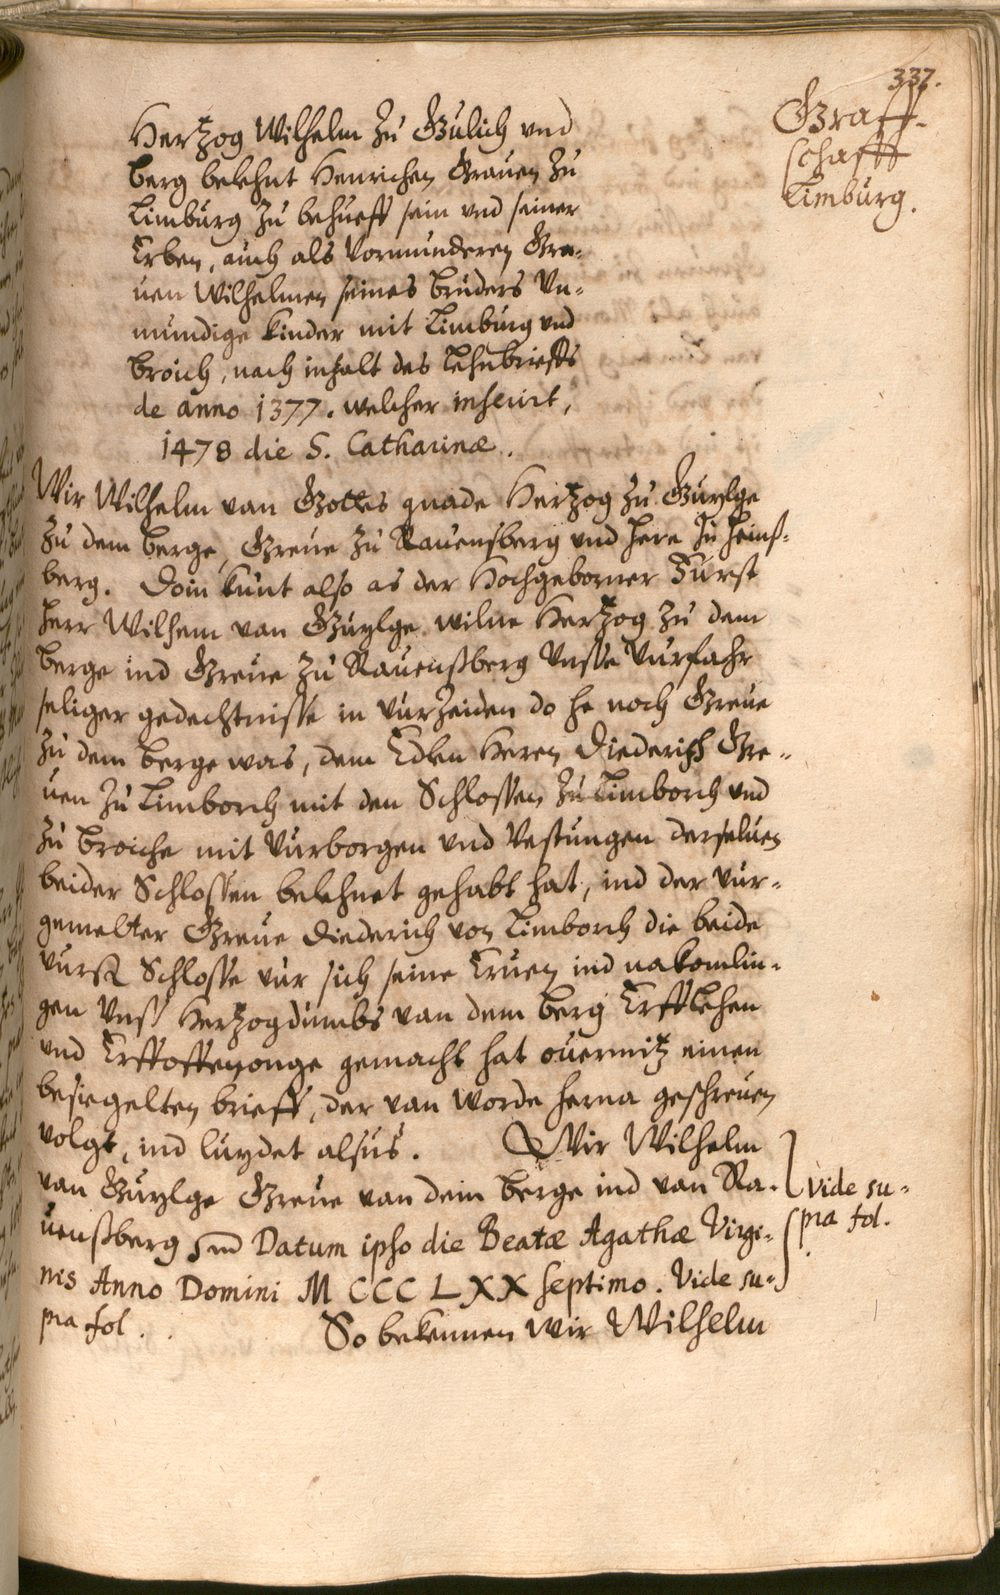 337.
Graff-
schafft
Limburg.
Hertzog Wilhelm zu Gulich vnd
Berg belehnt Henrichen Grauen zu
Limburg zu behueff sein vnd seiner
Erben, auch als Vormunderen Gra-
uen Wilhelmen seines bruders Vn-
mundige kinder mit Limburg vnd
broich, nach inhalt des lehnbrieffs
de anno 1377. welcher inserirt,
1478 die S. Catharinæ.
Wir Wilhelm van Gottes gnade Hertzog zu Guylge
zu dem berge, Greue zu Rauensberg vnd here zu heinß-
berg. Doin kunt also as der Hochgeborner Furst
herr Wilhem van Guylge wilne Hertzog zu dem
berge ind Greue zu Rauenßberg Vnsse Vurfahr
seliger gedechtnisse in vurzeiden do he noch Greue
zu dem berge was, dem Edlen Heren Diederich Gre-
uen zu Limborch mit den Schlossen zu Limborch vnd
zu broiche mit Vurborgen vnd Vestungen derseluen
beider Schlossen belehnet gehabt hat, ind der vur-
gemelter Greue Diederich von Limborch die beide
vurß Schlosse vur sich seine Eruen ind nakomlin-
gen Vnß Hertzogdumbs van dem berg Erfflehen
vnd Erffoffenonge gemacht hat ouermitz einen
besiegelten brieff, der van worde herna geschreuen
volgt, ind luydet alsus. Wir Wilhelm
van Guylge Greue van dem berge ind van Ra-
uenßberg Datum ipso die Beatæ Agathæ Virgi-
nis Anno Domini M CCC LXX septimo. Vide su-
pra fol.
Vide su-
pra fol.
So bekennen wir Wilhelm